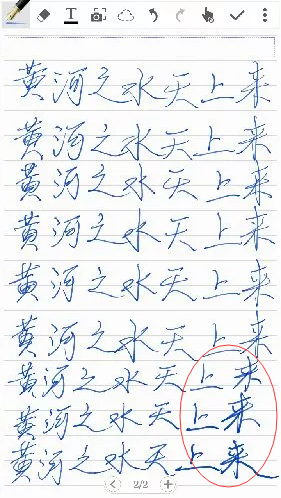 T
黄河之水天上来
黄河之水天上来
黄河之水天上来
黄河之水天上来
黄河之水天上来
黄河之水天上来
黄河之水天上来
黄河之水天上来
黄河之水天上来
2/2